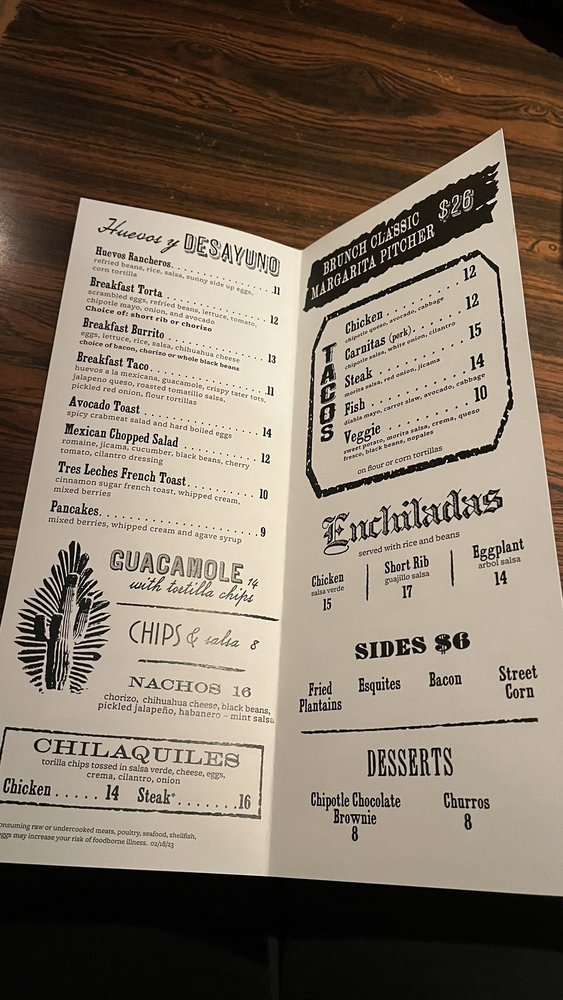 Huevos y DESAYUNO
Huevos Rancheros. . . . . . . . . . . . . . 11
refried beans, rice, salsa, sunny side up eggs,
corn tortilla
Breakfast Torta . . . . . . . . . . . . . . . 12
scrambled eggs, refried beans, lettuce, tomato,
chipotle mayo, onion, and avocado
Choice of: short rib or chorizo
Breakfast Burrito . . . . . . . . . . . . . 13
eggs, lettuce, rice, salsa, chihuahua cheese
choice of bacon, chorizo or whole black beans
Breakfast Taco . . . . . . . . . . . . . . 11
huevos a la mexicana, guacamole, crispy tater tots,
jalapeno queso, roasted tomatillo salsa,
pickled red onion, flour tortillas
Avocado Toast . . . . . . . . . . . . . . 14
spicy crabmeat salad and hard boiled eggs
Mexican Chopped Salad . . . . . . . . . 12
romaine, jicama, cucumber, black beans, cherry
tomato, cilantro dressing
Tres Leches French Toast. . . . . . . . 10
cinnamon sugar french toast, whipped cream,
mixed berries
Pancakes. . . . . . . . . . . . . . . . . . 9
mixed berries, whipped cream and agave syrup
GUACAMOLE 14
with tortilla chips
CHIPS & salsa 8
NACHOS 16
chorizo, chihuahua cheese, black beans,
pickled jalapeño, habanero – mint salsa
CHILAQUILES
torilla chips tossed in salsa verde, cheese, eggs,
crema, cilantro, onion
Chicken . . . . . 14 Steak* . . . . . . . 16
onsuming raw or undercooked meats, poultry, seafood, shellfish,
eggs may increase your risk of foodborne illness. 02/18/23
BRUNCH CLASSIC
MARGARITA PITCHER $26
TACOS
Chicken . . . . . . . . . . . . 12
chipotle queso, avocado, cabbage
Carnitas (pork) . . . . . . . . 12
chipotle salsa, white onion, cilantro
Steak . . . . . . . . . . . . . 15
morita salsa, red onion, jicama
Fish . . . . . . . . . . . . . . 14
diabla mayo, carrot slaw, avocado, cabbage
Veggie . . . . . . . . . . . . . 10
sweet potato, morita salsa, crema, queso
fresco, black beans, nopales
on flour or corn tortillas
Enchiladas
served with rice and beans
Chicken
salsa verde
15
Short Rib
guajillo salsa
17
Eggplant
arbol salsa
14
SIDES $6
Fried
Plantains
Esquites
Bacon
Street
Corn
DESSERTS
Chipotle Chocolate
Brownie
8
Churros
8